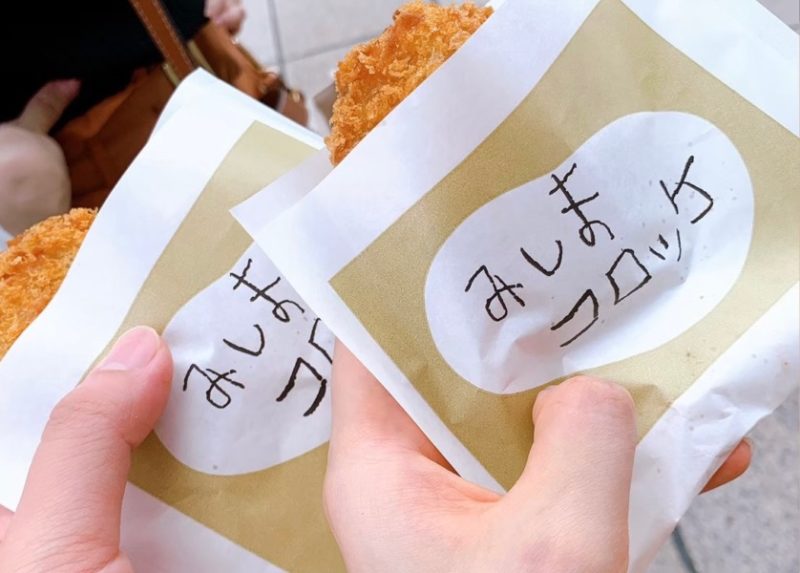 みしま
コロッケ
みしま
コロ